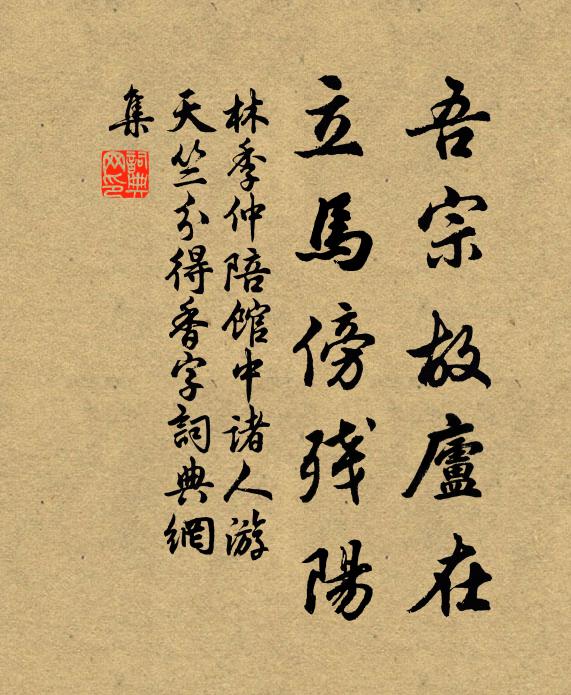 吾宗故廬在
立馬傍残陽
林季仲陪館中诸人游
天竺分得香字詞典網
集
詞典網印